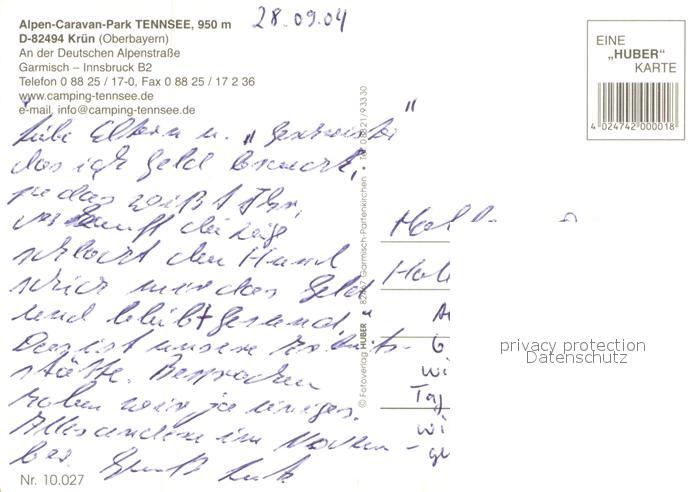 Alpen-Caravan-Park TENNSEE, 950 m
D-82494 Krün (Oberbayern)
An der Deutschen Alpenstraße
Garmisch – Innsbruck B2
Telefon 0 88 25 / 17-0, Fax 0 88 25 / 17 2 36
www.camping-tennsee.de
e-mail, info@camping-tennsee.de
28.09.04
EINE
„HUBER"
KARTE
4 024742 000018
Liebe Eltern u. „Geschwister"
das ich Geld braucht,
ja das wißt Ihr,
die Ziege
schlacht den Hund
schick mir das Geld
und bleibt gesund.
Das ist unsere
stätte. Besprochen
haben wir ja einiges.
Alles andere im Novem-
ber. Gruß
© Fotoverlag HUBER 82467 Garmisch-Partenkirchen • Tel. 0 88 21/9 33 30
wi
Tag
wi
privacy protection
Datenschutz
Nr. 10.027